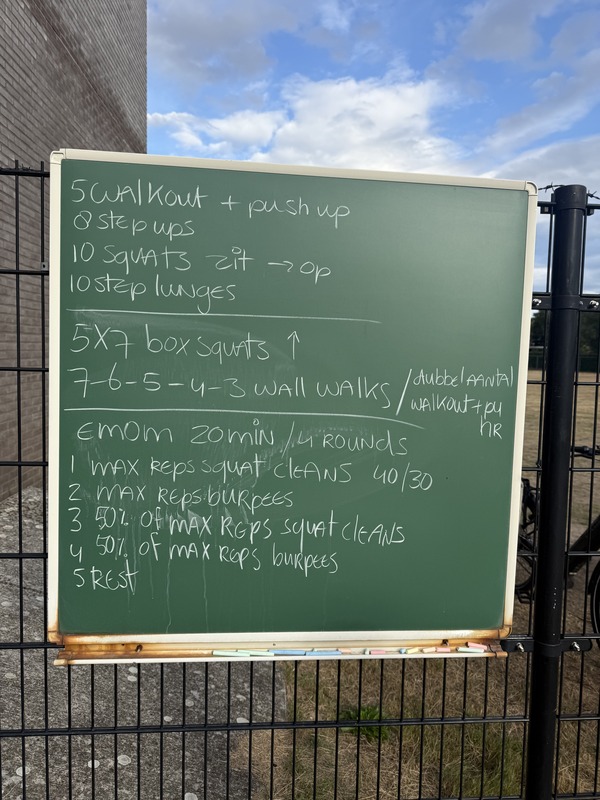 5 walkout + push up
8 step ups
10 squats zit → op
10 step lunges
5X7 box squats ↑
7-6-5-4-3 wall walks / dubbel aantal
walkout + pu
HR
EMOM 20 min / 4 ROUNDS
1 MAX REPS SQUAT CLEANS 40/30
2 MAX REPS BURPEES
3 50% OF MAX REPS SQUAT CLEANS
4 50% OF MAX REPS BURPEES
5 REST